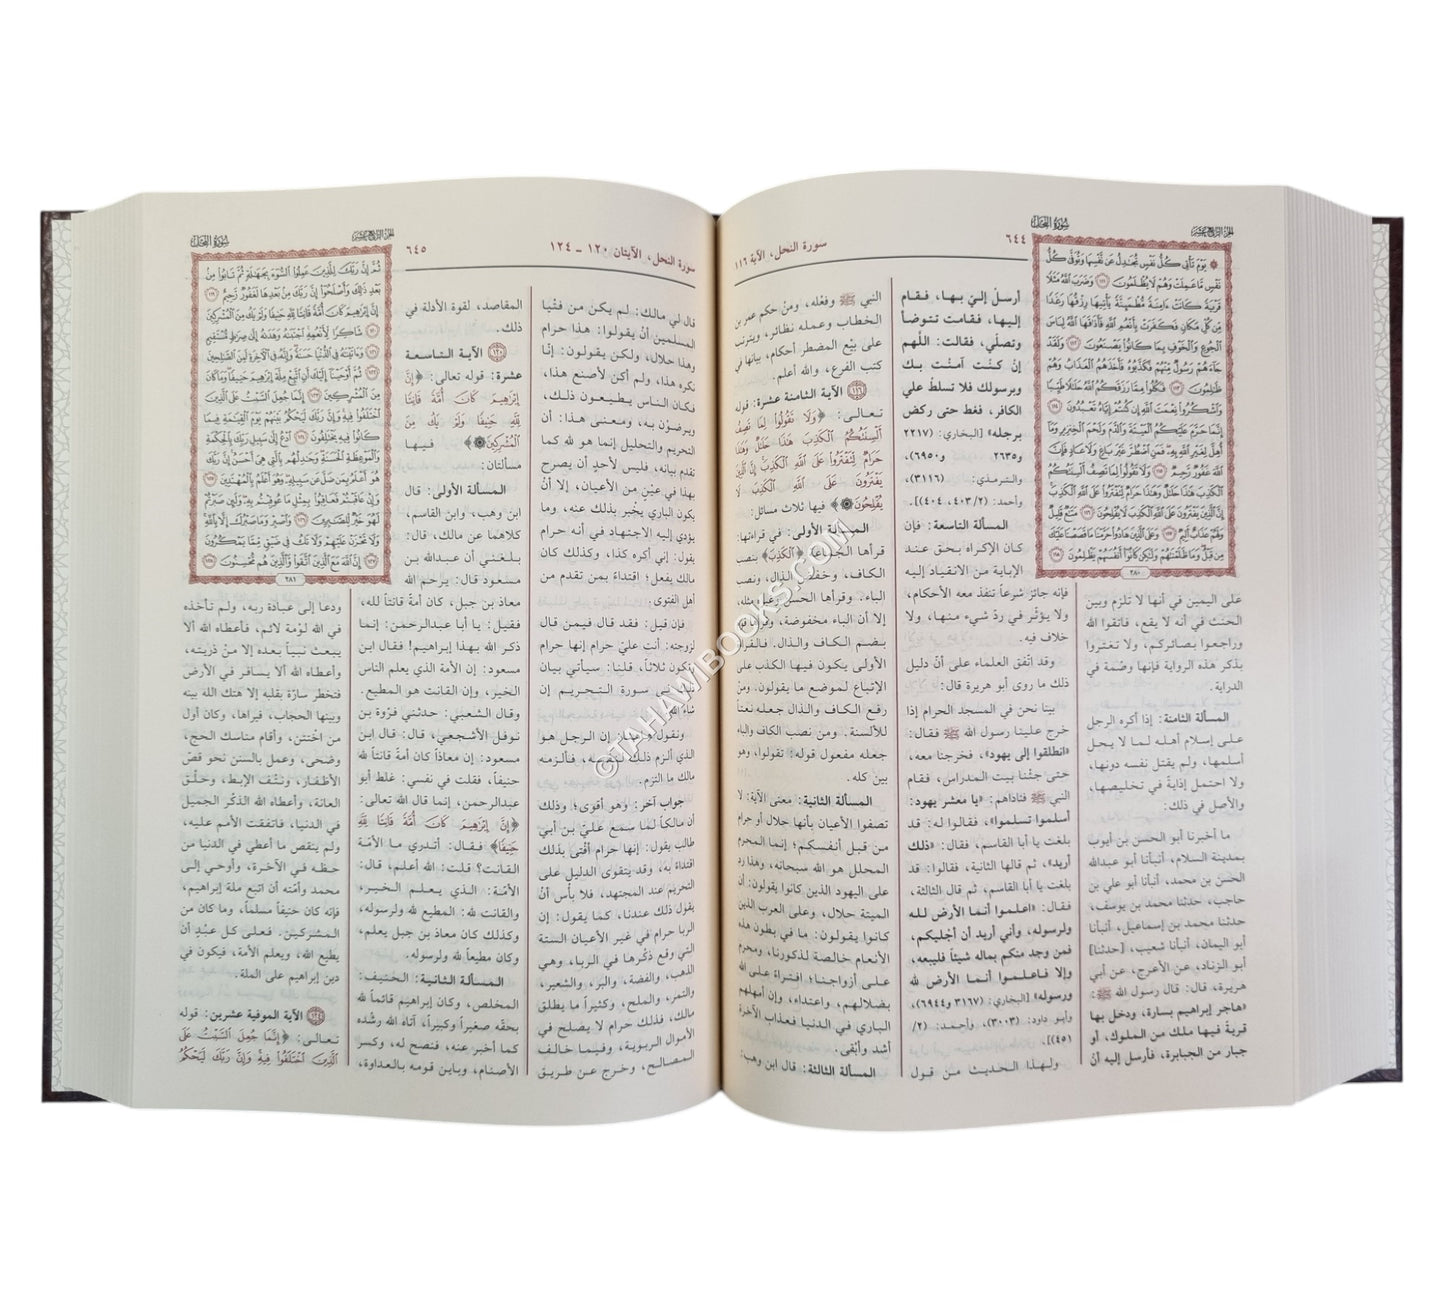 الجزء الرابع عشر
سورة النحل
٦٤٤
سورة النحل، الآية ١١٦
۞ يَوْمَ تَأْتِي كُلُّ نَفْسٍ تُجَادِلُ عَن نَّفْسِهَا وَتُوَفَّىٰ كُلُّ
نَفْسٍ مَّا عَمِلَتْ وَهُمْ لَا يُظْلَمُونَ ١١١ وَضَرَبَ اللَّهُ مَثَلًا
قَرْيَةً كَانَتْ ءَامِنَةً مُّطْمَئِنَّةً يَأْتِيهَا رِزْقُهَا رَغَدًا
مِّن كُلِّ مَكَانٍ فَكَفَرَتْ بِأَنْعُمِ اللَّهِ فَأَذَاقَهَا اللَّهُ لِبَاسَ
الْجُوعِ وَالْخَوْفِ بِمَا كَانُوا يَصْنَعُونَ ١١٢ وَلَقَدْ
جَاءَهُمْ رَسُولٌ مِّنْهُمْ فَكَذَّبُوهُ فَأَخَذَهُمُ الْعَذَابُ وَهُمْ
ظَالِمُونَ ١١٣ فَكُلُوا مِمَّا رَزَقَكُمُ اللَّهُ حَلَالًا طَيِّبًا
وَاشْكُرُوا نِعْمَتَ اللَّهِ إِن كُنتُمْ إِيَّاهُ تَعْبُدُونَ ١١٤
إِنَّمَا حَرَّمَ عَلَيْكُمُ الْمَيْتَةَ وَالدَّمَ وَلَحْمَ الْخِنزِيرِ وَمَا
أُهِلَّ لِغَيْرِ اللَّهِ بِهِ فَمَنِ اضْطُرَّ غَيْرَ بَاغٍ وَلَا عَادٍ فَإِنَّ
اللَّهَ غَفُورٌ رَّحِيمٌ ١١٥ وَلَا تَقُولُوا لِمَا تَصِفُ أَلْسِنَتُكُمُ
الْكَذِبَ هَٰذَا حَلَالٌ وَهَٰذَا حَرَامٌ لِّتَفْتَرُوا عَلَى اللَّهِ الْكَذِبَ
إِنَّ الَّذِينَ يَفْتَرُونَ عَلَى اللَّهِ الْكَذِبَ لَا يُفْلِحُونَ ١١٦ مَتَاعٌ قَلِيلٌ
وَلَهُمْ عَذَابٌ أَلِيمٌ ١١٧ وَعَلَى الَّذِينَ هَادُوا حَرَّمْنَا مَا قَصَصْنَا عَلَيْكَ
مِن قَبْلُ وَمَا ظَلَمْنَاهُمْ وَلَٰكِن كَانُوا أَنفُسَهُمْ يَظْلِمُونَ ١١٨
٢٨٠
على اليمين في أنها لا تلزم وبين
الحنث في أنه لا يقع، فاتقوا الله
وراجعوا بصائركم، ولا تغتروا
بذكر هذه الرواية فإنها وصْمة في
الدراية.
المسألة الثامنة: إذا أكره الرجل
على إسلام أهله لما لا يحل
أسلمها، ولم يقتل نفسه دونها،
ولا احتمل إذايةً في تخليصها،
والأصل في ذلك:
ما أخبرنا أبو الحسن بن أيوب
بمدينة السلام، أنبأنا أبو عبدالله
الحسن بن محمد، أنبأنا أبو علي بن
حاجب، حدثنا محمد بن يوسف،
حدثنا محمد بن إسماعيل، أنبأنا
أبو اليمان، أنبأنا شعيب، [حدثنا]
أبو الزناد، عن الأعرج، عن أبي
هريرة، قال: قال رسول الله ﷺ:
«هاجر إبراهيم بسارة، ودخل بها
قريةً فيها ملك من الملوك، أو
جبار من الجبابرة، فأرسل إليه أنْ
أرسلْ إليّ بها، فقام
إليها، فقامت تتوضأ
وتصلّي، فقالت: اللّهم
إن كنت آمنت بك
وبرسولك فلا تسلط علي
الكافر، فغط حتى ركض
برجله» [البخاري: (٢٢١٧
و٢٦٣٥ و٦٩٥٠)،
والترمذي: (٣١١٦)،
وأحمد: (٤٠٣/٢، ٤٠٤)].
المسألة التاسعة: فإن
كان الإكراه بحق عند
الإباية من الانقياد إليه
فإنه جائز شرعاً تنفذ معه الأحكام،
ولا يؤثّر في ردّ شيء منها، ولا
خلاف فيه.
وقد اتّفق العلماء على أنّ دليل
ذلك ما روى أبو هريرة قال:
بينا نحن في المسجد الحرام إذا
خرج علينا رسول الله ﷺ فقال:
«انطلقوا إلى يهود»، فخرجنا معه،
حتى جئنا بيت المدراس، فقام
النبي ﷺ فناداهم: «يا معشر يهود:
أسلموا تسلموا»، فقالوا له: قد
بلغت يا أبا القاسم، فقال: «ذلك
أريد»، ثم قالها الثانية، فقالوا: قد
بلغت يا أبا القاسم، ثم قال الثالثة،
فقال: «اعلموا أنما الأرض لله
ولرسوله، وأني أريد أن أجليكم،
فمن وجد منكم بماله شيئاً فليبعه،
وإلا فاعلموا أنما الأرض لله
ورسوله» [البخاري: (٣١٦٧ و٦٩٤٤)،
وأبو داود: (٣٠٠٣)، وأحمد: (٢/
٤٥١)].
ولهذا الحديث من قول
النبي ﷺ وفعْله، ومنْ حكم عمر بن
الخطاب وعمله نظائر، ويترتب
على بيْع المضطر أحكام، بيانها في
كتب الفرع، والله أعلم.
١١٦ الآية الثامنة عشرة: قوله
تعالى: ﴿وَلَا تَقُولُوا لِمَا تَصِفُ
أَلْسِنَتُكُمُ الْكَذِبَ هَٰذَا حَلَالٌ وَهَٰذَا
حَرَامٌ لِّتَفْتَرُوا عَلَى اللَّهِ الْكَذِبَ إِنَّ الَّذِينَ
يَفْتَرُونَ عَلَى اللَّهِ الْكَذِبَ لَا
يُفْلِحُونَ﴾ فيها ثلاث مسائل:
المسألة الأولى: في قراءتها:
قرأها الجماعة ﴿الْكَذِبَ﴾ بنصب
الكاف، وخفض الذال، ونصب
الباء. وقرأها الحسن وغيره مثله،
إلا أن الباء مخفوضة، وقرأها قوم
بضم الكاف والذال. فالقراءة
الأولى يكون فيها الكذب على
الإتباع لموضع ما يقولون. ومن
رفع الكاف والذال جعله نعتاً
للألسنة. ومن نصب الكاف والباء
جعله مفعول قوله: تقولوا، وهو
بينَ كله.
المسألة الثانية: معنى الآية: لا
تصفوا الأعيان بأنها حلال أو حرام
من قبل أنفسكم؛ إنما المحرم
المحلل هو الله سبحانه، وهذا رد
على اليهود الذين كانوا يقولون: أن
الميتة حلال، وعلى العرب الذين
كانوا يقولون: ما في بطون هذه
الأنعام خالصة لذكورنا، ومحرم
على أزواجنا؛ افتراء على الله
بضلالهم، واعتداء، وإن أمهلهم
الباري في الدنيا فعذاب الآخرة
أشد وأبْقى.
المسألة الثالثة: قال ابن وهب:
سورة النحل، الآيتان ١٢٠ - ١٢٤
٦٤٥
الجزء الرابع عشر
سورة النحل
قال لي مالك: لم يكن من فتْيا
المسلمين أنْ يقولوا: هذا حرام
وهذا حلال، ولكن يقولون: إنّا
نكره هذا، ولم أكن لأصنع هذا،
فكان الناس يطيعون ذلك،
ويرضون به، ومعنى هذا: أن
التحريم والتحليل إنما هو لله كما
تقدم بيانه، فليس لأحدٍ أن يصرح
بهذا في عيْن من الأعيان، إلا أنْ
يكون الباري يخْبر بذلك عنه، وما
يؤدي إليه الاجتهاد في أنه حرام
يقول: إني أكره كذا، وكذلك كان
مالك يفعل؛ اقتداءً بمن تقدم من
أهل الفتوى.
فإن قيل: فقد قال فيمن قال
لزوجته: أنت عليّ حرام إنها حرام
وتكون ثلاثاً، قلنا: سيأتي بيان
ذلك في سورة التحريم إن
شاء الله.
ونقول ههنا: إن الرجل هو
الذي ألزم ذلك نفسه، فألزمنه
مالك ما التزم.
جواب آخر: وهو أقوى؛ وذلك
أن مالكاً لما سمع عليّ بن أبي
طالب يقول: إنها حرام أفْتى بذلك
اقتداءً به، وقد يتقوى الدليل على
التحريم عند المجتهد، فلا بأس أنْ
يقول ذلك عندنا، كما يقول: إن
الربا حرام في غير الأعيان الستة
التي وقع ذكْرها في الربا، وهي
الذهب، والفضة، والبر، والشعير،
والتمر، والملح، وكثيراً ما يطلق
مالك، فذلك حرام لا يصلح في
الأموال الربوية، وفيما خالف
المصالح، وخرج عن طريق
المقاصد، لقوة الأدلة في
ذلك.
١٢٠ الآية التاسعة
عشرة: قوله تعالى: ﴿إِنَّ
إِبْرَاهِيمَ كَانَ أُمَّةً قَانِتًا
لِّلَّهِ حَنِيفًا وَلَمْ يَكُ مِنَ
الْمُشْرِكِينَ﴾ فيها
مسألتان:
المسألة الأولى: قال
ابن وهب، وابن القاسم،
كلاهما عن مالك، قال:
بلغني أن عبدالله بن
مسعود قال: يرحم الله
معاذ بن جبل، كان أمة قانتاً لله،
فقيل: يا أبا عبدالرحمن: إنما
ذكر الله بهذا إبراهيم! فقال ابن
مسعود: إن الأمة الذي يعلم الناس
الخير، وإن القانت هو المطيع.
وقال الشعبي: حدثني فرْوة بن
نوفل الأشجعي، قال: قال ابن
مسعود: إن معاذاً كان أمةً قانتاً لله
حنيفاً، فقلت في نفسي: غلط أبو
عبدالرحمن، إنما قال الله تعالى:
﴿إِنَّ إِبْرَاهِيمَ كَانَ أُمَّةً قَانِتًا لِّلَّهِ
حَنِيفًا﴾ فقال: أتدري ما الأمّة
القانت؟ قلت: الله أعلم، قال:
الأمّة: الذي يعلم الخير،
والقانت لله: المطيع لله ولرسوله،
وكذلك كان معاذ بن جبل يعلم،
وكان مطيعاً لله ولرسوله.
المسألة الثانية: الحنيف:
المخلص، وكان إبراهيم قائماً لله
بحقّه صغيراً وكبيراً، آتاه الله رشْده
كما أخبر عنه، فنصح له، وكسر
الأصنام، وباين قومه بالعداوة،
ثُمَّ إِنَّ رَبَّكَ لِلَّذِينَ عَمِلُوا السُّوءَ بِجَهَالَةٍ ثُمَّ تَابُوا مِن
بَعْدِ ذَٰلِكَ وَأَصْلَحُوا إِنَّ رَبَّكَ مِن بَعْدِهَا لَغَفُورٌ رَّحِيمٌ ١١٩
إِنَّ إِبْرَاهِيمَ كَانَ أُمَّةً قَانِتًا لِّلَّهِ حَنِيفًا وَلَمْ يَكُ مِنَ الْمُشْرِكِينَ
١٢٠ شَاكِرًا لِّأَنْعُمِهِ اجْتَبَاهُ وَهَدَاهُ إِلَىٰ صِرَاطٍ مُّسْتَقِيمٍ
١٢١ وَءَاتَيْنَاهُ فِي الدُّنْيَا حَسَنَةً وَإِنَّهُ فِي الْآخِرَةِ لَمِنَ الصَّالِحِينَ
١٢٢ ثُمَّ أَوْحَيْنَا إِلَيْكَ أَنِ اتَّبِعْ مِلَّةَ إِبْرَاهِيمَ حَنِيفًا وَمَا كَانَ
مِنَ الْمُشْرِكِينَ ١٢٣ إِنَّمَا جُعِلَ السَّبْتُ عَلَى الَّذِينَ
اخْتَلَفُوا فِيهِ وَإِنَّ رَبَّكَ لَيَحْكُمُ بَيْنَهُمْ يَوْمَ الْقِيَامَةِ فِيمَا
كَانُوا فِيهِ يَخْتَلِفُونَ ١٢٤ ادْعُ إِلَىٰ سَبِيلِ رَبِّكَ بِالْحِكْمَةِ
وَالْمَوْعِظَةِ الْحَسَنَةِ وَجَادِلْهُم بِالَّتِي هِيَ أَحْسَنُ إِنَّ رَبَّكَ
هُوَ أَعْلَمُ بِمَن ضَلَّ عَن سَبِيلِهِ وَهُوَ أَعْلَمُ بِالْمُهْتَدِينَ ١٢٥
وَإِنْ عَاقَبْتُمْ فَعَاقِبُوا بِمِثْلِ مَا عُوقِبْتُم بِهِ وَلَئِن صَبَرْتُمْ
لَهُوَ خَيْرٌ لِّلصَّابِرِينَ ١٢٦ وَاصْبِرْ وَمَا صَبْرُكَ إِلَّا بِاللَّهِ
وَلَا تَحْزَنْ عَلَيْهِمْ وَلَا تَكُ فِي ضَيْقٍ مِّمَّا يَمْكُرُونَ
١٢٧ إِنَّ اللَّهَ مَعَ الَّذِينَ اتَّقَوا وَّالَّذِينَ هُم مُّحْسِنُونَ ١٢٨
٢٨١
ودعا إلى عبادة ربه، ولم تأخذه
في الله لوْمة لائم، فأعطاه الله ألا
يبعث نبياً بعده إلا منْ ذريته،
وأعطاه الله ألا يسافر في الأرض
فتخطر سارّة بقلبه إلا هتك الله بينه
وبينها الحجاب، فيراها، وكان أول
من اخْتتن، وأقام مناسك الحج،
وضحى، وعمل بالسنن نحو قصّ
الأظفار، ونتْف الإبط، وحلْق
العانة، وأعطاه الله الذكْر الجميل
في الدنيا، فاتفقت الأمم عليه،
ولم ينقص ما أعطي في الدنيا من
حظه في الآخرة، وأوحى إلى
محمد وأمّته أن اتبع ملة إبراهيم،
فإنه كان حنيفاً مسلماً، وما كان من
المشركين. فعلى كل عبْدٍ أن
يطيع الله، ويعلم الأمة، فيكون في
دين إبراهيم على الملة.
١٢٤ الآية الموفية عشرين: قوله
تعالى: ﴿إِنَّمَا جُعِلَ السَّبْتُ عَلَى
الَّذِينَ اخْتَلَفُوا فِيهِ وَإِنَّ رَبَّكَ لَيَحْكُمُ
©TAHAWIBOOKS.COM